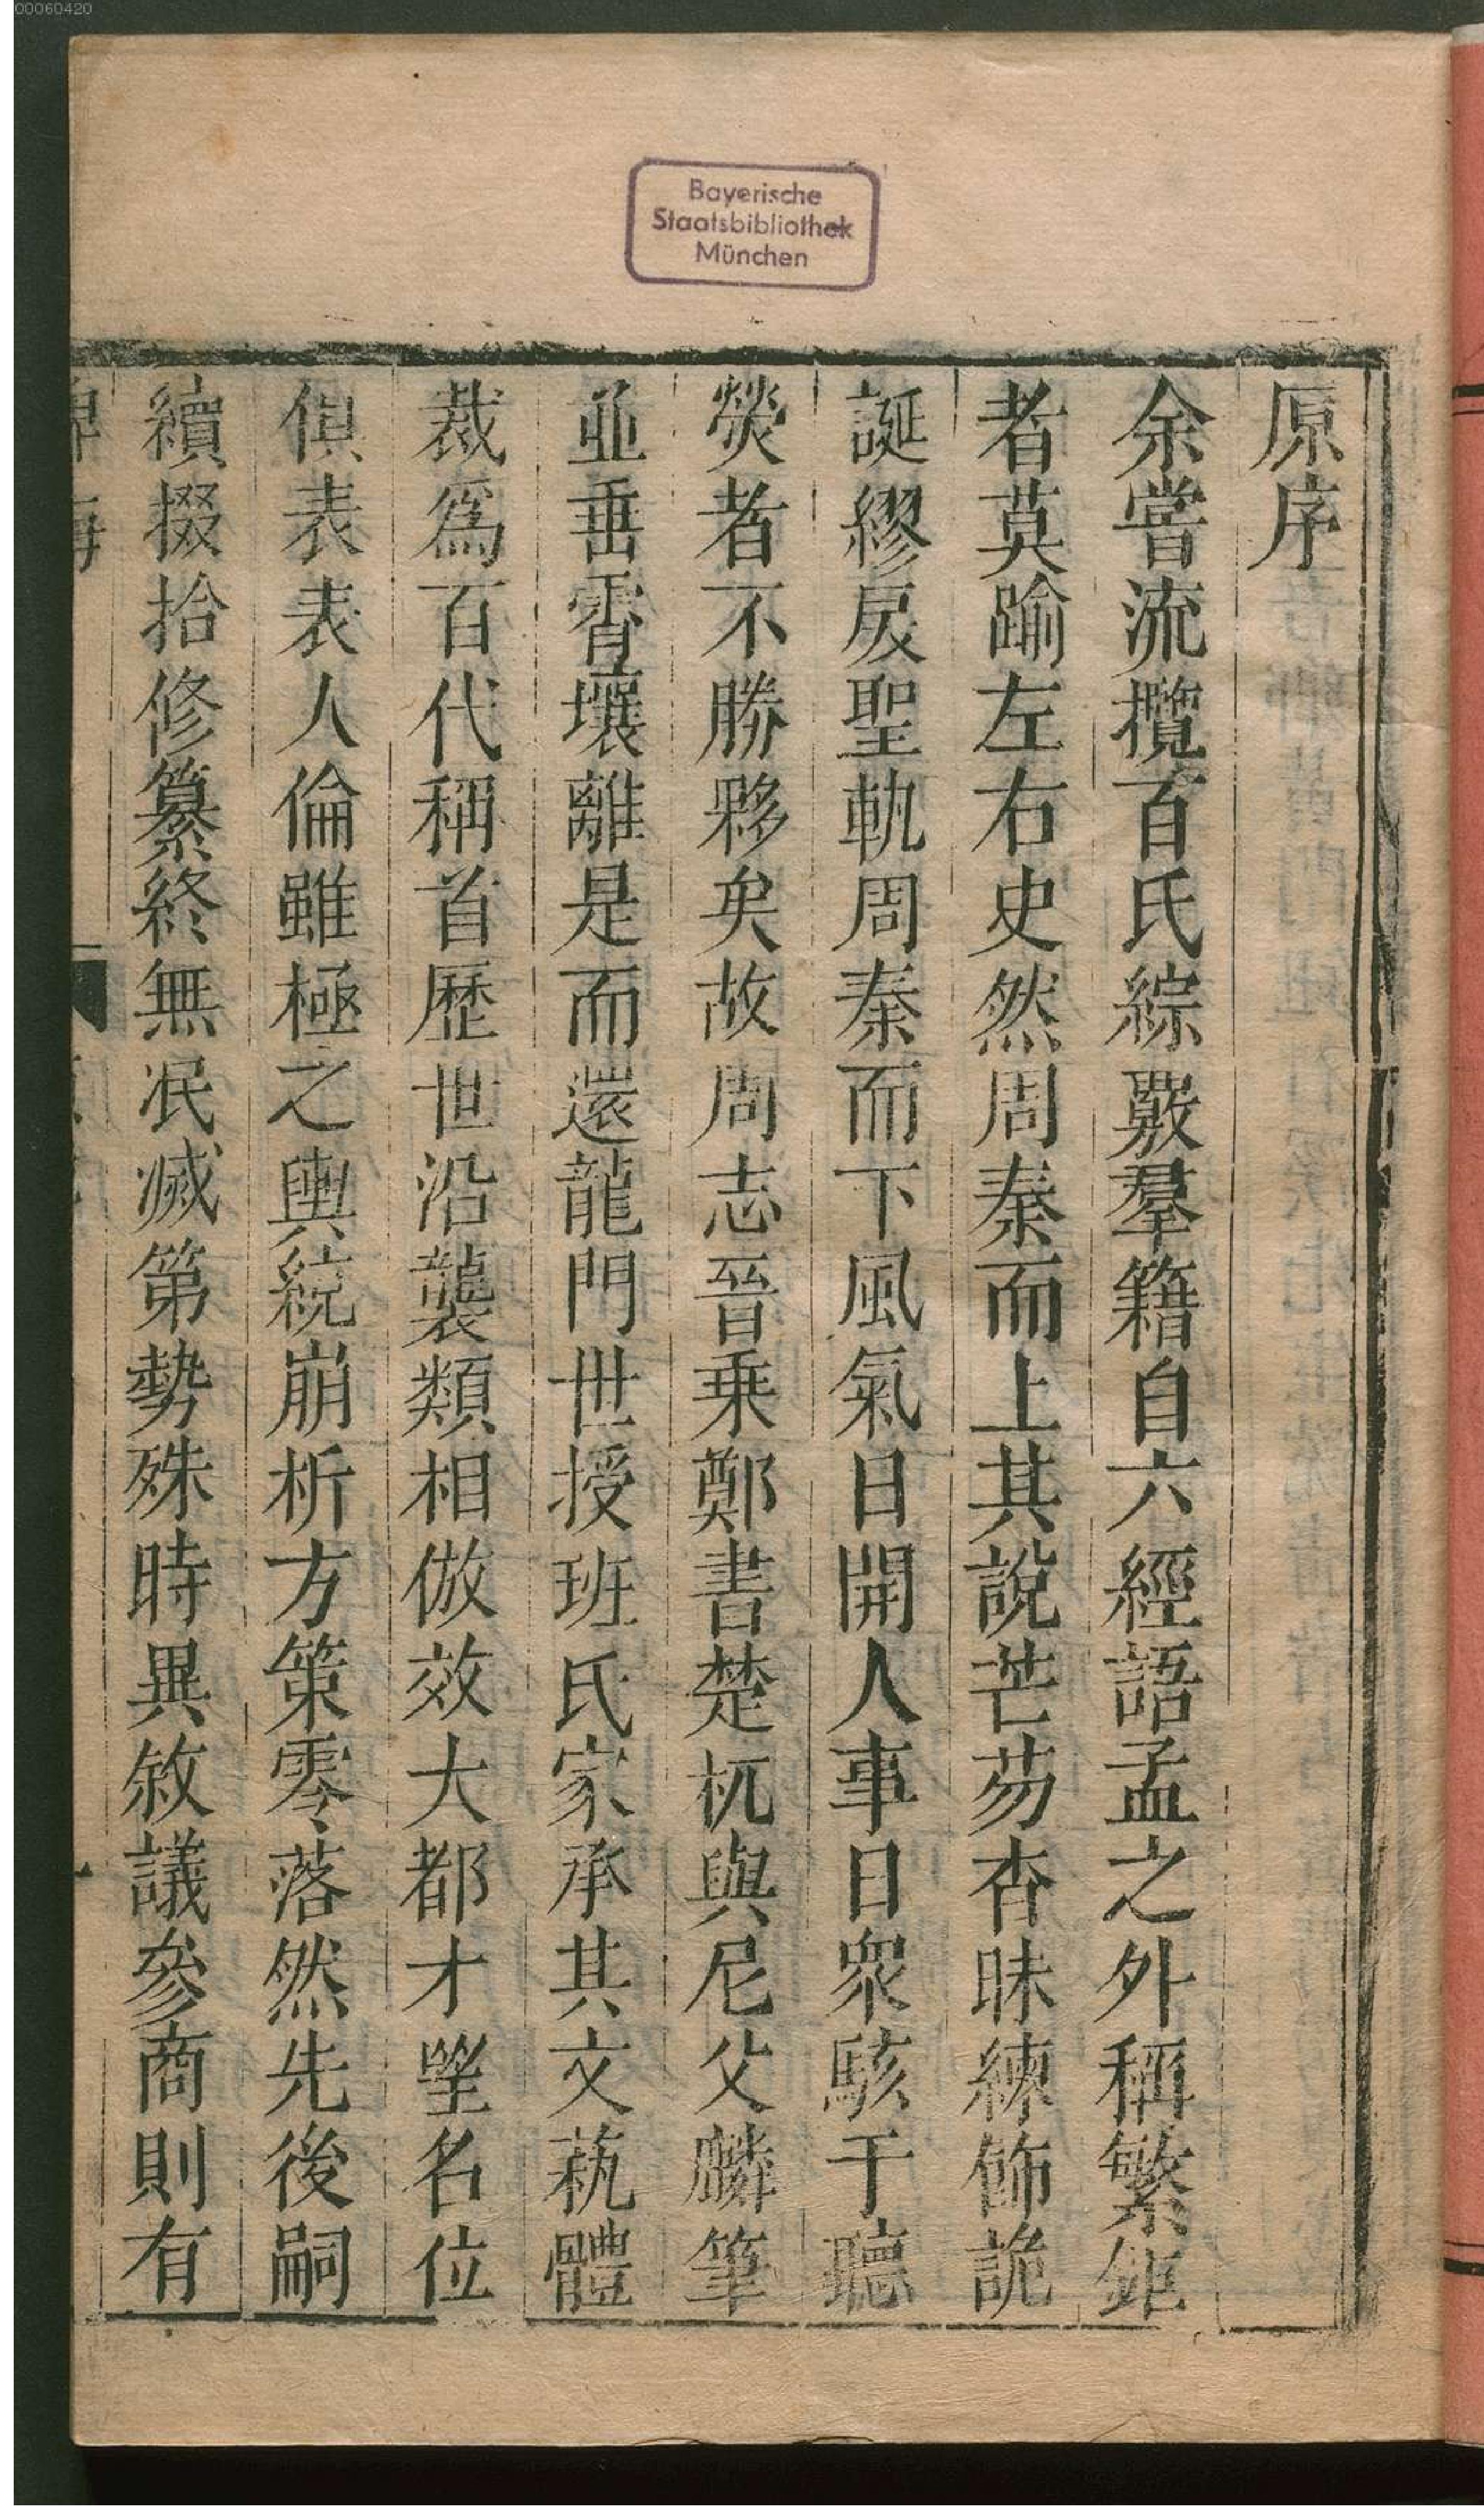 00060420
Bayerische
Staatsbibliothek
München
原序
余嘗流攬百氏綜覈羣籍自六經語孟之外稱繁鉅
者莫踰左右史然周秦而上其說芒芴杳昧練飾詭
誕繆戾聖軌周秦而下風氣日開人事日衆駭于聽
熒者不勝夥矣故周志晉乗鄭書楚杌與尼父麟筆
並垂霄壤離是而還龍門世授班氏家承其文蓺體
裁爲百代稱首歷世沿襲類相倣效大都才望名位
俱表表人倫雖極之輿統崩析方策零落然先後嗣
續掇拾修纂終無泯滅第勢殊時異敘議參商則有